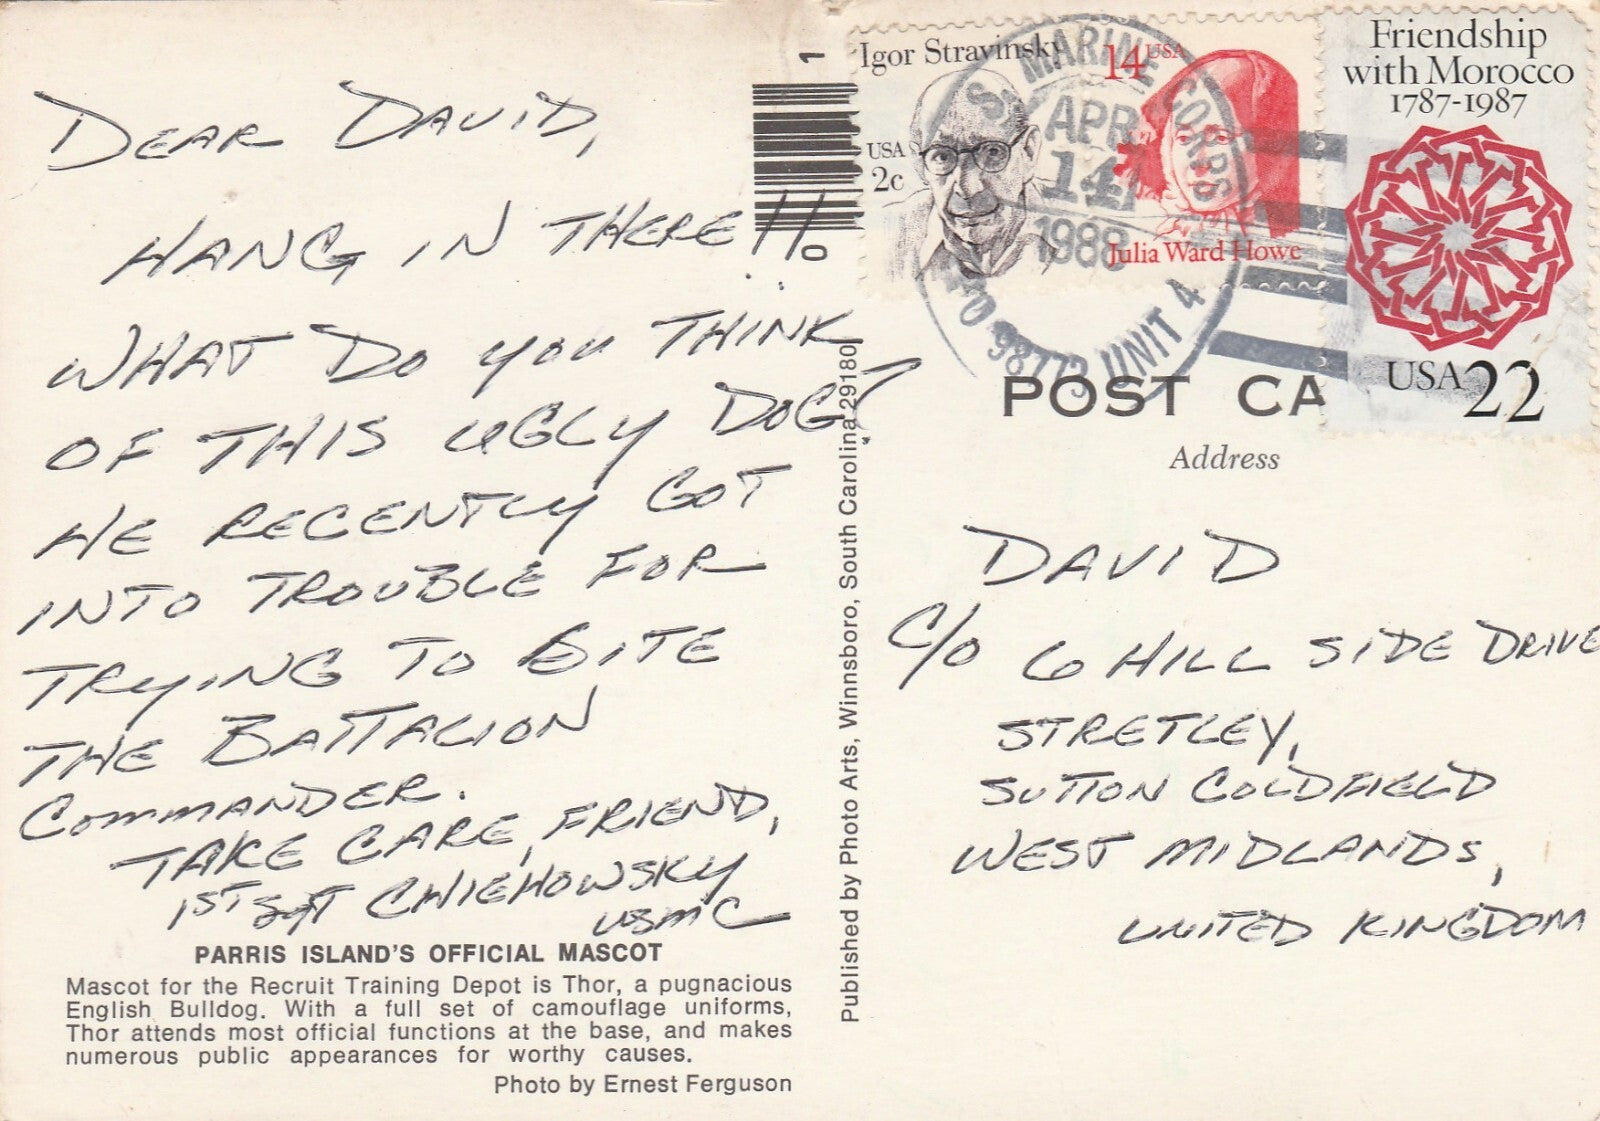 DEAR DAVID,
HANG IN THERE!!
WHAT DO YOU THINK
OF THIS UGLY DOG?
HE RECENTLY GOT
INTO TROUBLE FOR
TRYING TO BITE
THE BATTALION
COMMANDER.
TAKE CARE, FRIEND,
1ST SGT CHIEHOWSKY
USMC
PARRIS ISLAND'S OFFICIAL MASCOT
Mascot for the Recruit Training Depot is Thor, a pugnacious
English Bulldog. With a full set of camouflage uniforms,
Thor attends most official functions at the base, and makes
numerous public appearances for worthy causes.
Photo by Ernest Ferguson
1
0
Published by Photo Arts, Winnsboro, South Carolina 29180
Igor Stravinsky
USA
2c
14 USA
Julia Ward Howe
Friendship
with Morocco
1787-1987
USA 22
MARINE CORPS
APR
14
1988
98773 UNIT 4
POST CA
Address
DAVID
C/O 6 HILL SIDE DRIVE
STRETLEY,
SUTTON COLDFIELD
WEST MIDLANDS,
UNITED KINGDOM